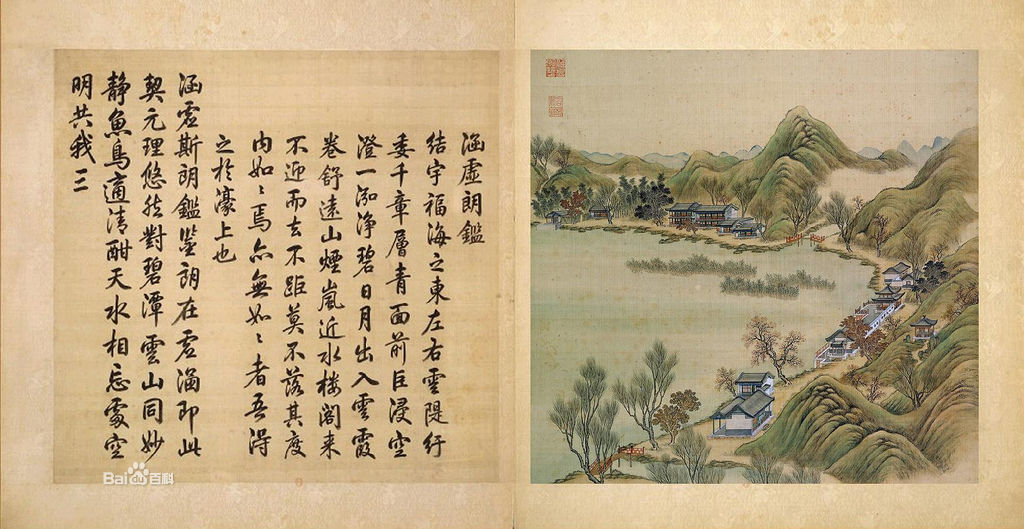 涵虛朗鑑
結宇福海之東左右雲隄紆
委千章層青面前巨浸空
澄一泓淨碧日月出入雲霞
卷舒遠山煙嵐近水樓閣來
不迎而去不距莫不落其度
內如〻焉亦無如〻者吾得
之於濠上也
涵虛斯朗鑑鑒朗在虛涵即此
契元理悠然對碧潭雲山同妙
靜魚鳥適清酣天水相忘處空
明共我三
Baidu百科